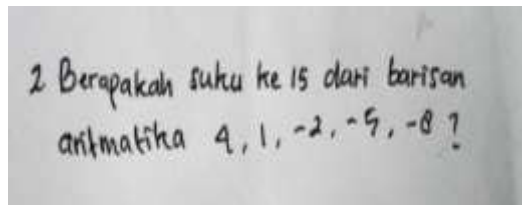 2 Berapakah suku ke 15 dari barisan
aritmatika 4, 1, -2, -5, -8 ?